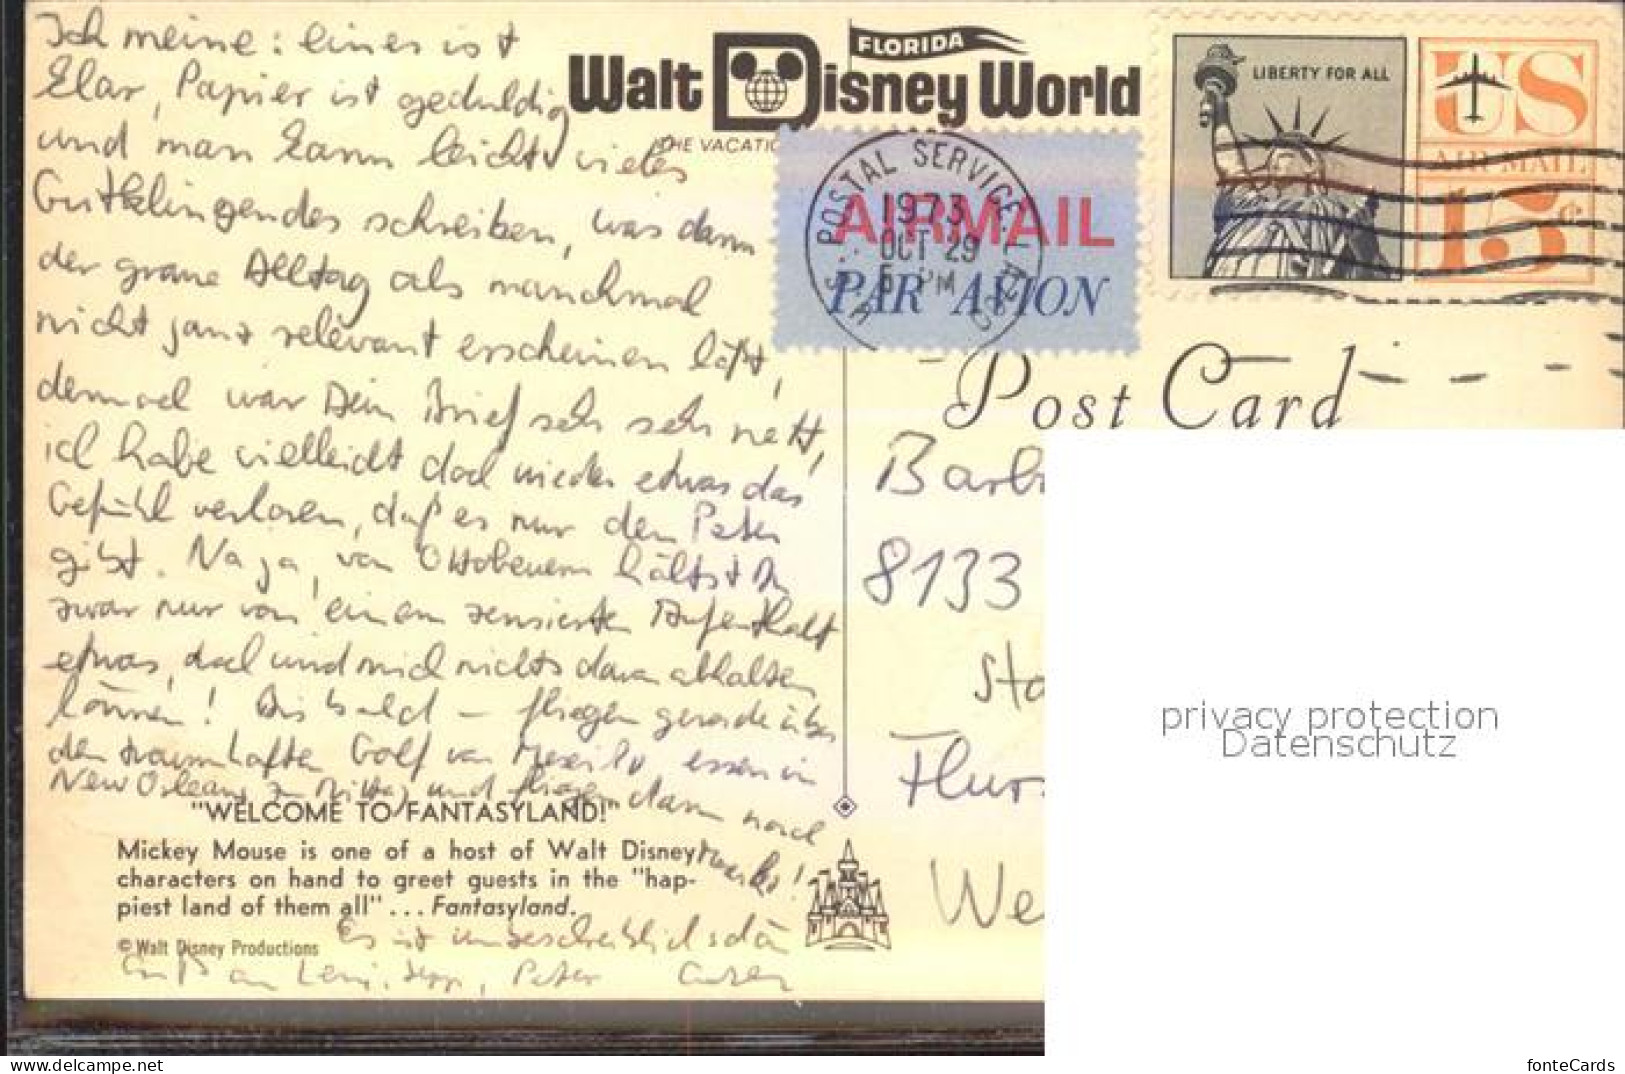 Ich meine: eines ist
klar, Papier ist geduldig
und man kann leicht vieles
Gutklingendes schreiben, was dann
der graue Alltag als manchmal
nicht ganz relevant erscheinen läßt,
dennoch war Dein Brief sehr sehr nett,
ich habe vielleicht doch wieder etwas das
Gefühl verloren, daß es nur den Peter
gibt. Na ja, von Ottobeuern hältst Du
zwar nur von einem Aufenthalt
etwas, doch wird mich nichts davon abhalten
können! Bis bald – fliegen gerade über
den traumhaften Golf von Mexiko essen in
New Orleans zu Mittag und fliegen dann nach
Es ist unbeschreiblich schön
Gruß an Leni, Sepp, Peter
FLORIDA
Walt Disney World
THE VACATI
AIRMAIL
PAR AVION
POSTAL SERVICE
1973
OCT 29
PM
LIBERTY FOR ALL
US
AIR MAIL
15c
Post Card
Barb
8133
Sta
Flur
We
"WELCOME TO FANTASYLAND!"
Mickey Mouse is one of a host of Walt Disney
characters on hand to greet guests in the "hap-
piest land of them all" ... Fantasyland.
© Walt Disney Productions
privacy protection
Datenschutz
www.delcampe.net
fonteCards